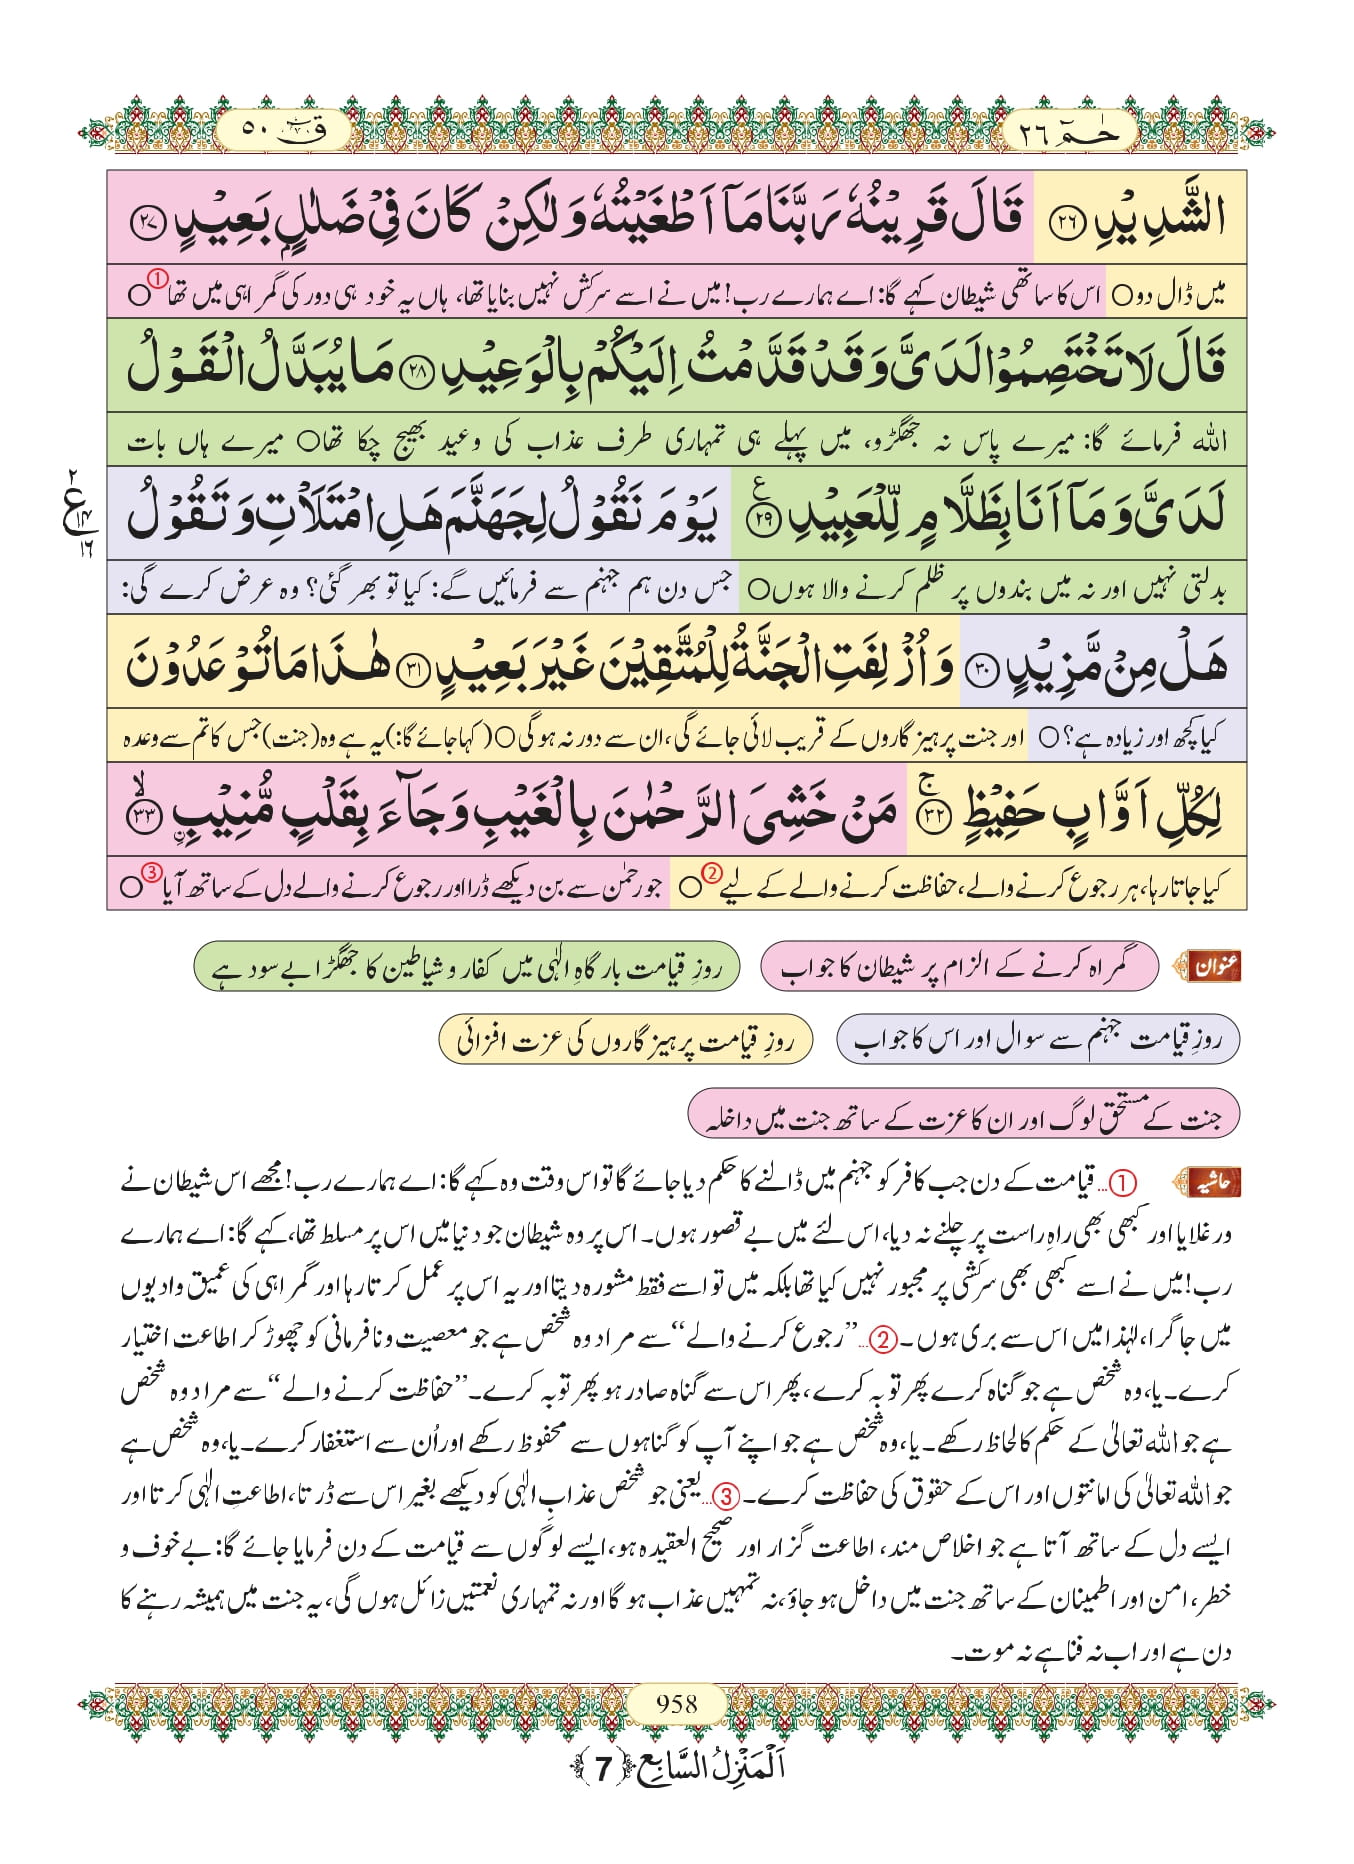 حٰمٓ ٢٦
قٓ ٥٠
الشَّدِیْدِ ﴿۲۶﴾ قَالَ قَرِیْنُهٗ رَبَّنَا مَاۤ اَطْغَیْتُهٗ وَ لٰكِنْ كَانَ فِیْ ضَلٰلٍۭ بَعِیْدٍ ﴿۲۷﴾
میں ڈال دو○ اس کا ساتھی شیطان کہے گا: اے ہمارے رب! میں نے اسے سرکش نہیں بنایا تھا، ہاں یہ خود ہی دور کی گمراہی میں تھا①○
قَالَ لَا تَخْتَصِمُوْا لَدَیَّ وَ قَدْ قَدَّمْتُ اِلَیْكُمْ بِالْوَعِیْدِ ﴿۲۸﴾ مَا یُبَدَّلُ الْقَوْلُ
اللہ فرمائے گا: میرے پاس نہ جھگڑو، میں پہلے ہی تمہاری طرف عذاب کی وعید بھیج چکا تھا○ میرے ہاں بات
لَدَیَّ وَ مَاۤ اَنَا بِظَلَّامٍ لِّلْعَبِیْدِ ﴿۲۹﴾ ع یَوْمَ نَقُوْلُ لِجَهَنَّمَ هَلِ امْتَلَاْتِ وَ تَقُوْلُ
٢
ع
۱۴
١٦
بدلتی نہیں اور نہ میں بندوں پر ظلم کرنے والا ہوں○ جس دن ہم جہنم سے فرمائیں گے: کیا تو بھر گئی؟ وہ عرض کرے گی:
هَلْ مِنْ مَّزِیْدٍ ﴿۳۰﴾ وَ اُزْلِفَتِ الْجَنَّةُ لِلْمُتَّقِیْنَ غَیْرَ بَعِیْدٍ ﴿۳۱﴾ هٰذَا مَا تُوْعَدُوْنَ
کیا کچھ اور زیادہ ہے؟○ اور جنت پرہیزگاروں کے قریب لائی جائے گی، ان سے دور نہ ہوگی○ (کہا جائے گا:) یہ ہے وہ (جنت) جس کا تم سے وعدہ
لِكُلِّ اَوَّابٍ حَفِیْظٍ ﴿۳۲﴾ ج مَنْ خَشِیَ الرَّحْمٰنَ بِالْغَیْبِ وَ جَآءَ بِقَلْبٍ مُّنِیْبِۙ ﴿۳۳﴾
کیا جاتا رہا، ہر رجوع کرنے والے، حفاظت کرنے والے کے لیے②○ جو رحمٰن سے بن دیکھے ڈرا اور رجوع کرنے والے دل کے ساتھ آیا③○
عنوان گمراہ کرنے کے الزام پر شیطان کا جواب روزِ قیامت بارگاہِ الٰہی میں کفار و شیاطین کا جھگڑا بے سود ہے
روزِ قیامت جہنم سے سوال اور اس کا جواب روزِ قیامت پرہیزگاروں کی عزت افزائی
جنت کے مستحق لوگ اور ان کا عزت کے ساتھ جنت میں داخلہ
حاشیہ ①... قیامت کے دن جب کافر کو جہنم میں ڈالنے کا حکم دیا جائے گا تو اس وقت وہ کہے گا: اے ہمارے رب! مجھے اس شیطان نے
ورغلایا اور کبھی بھی راہِ راست پر چلنے نہ دیا، اس لئے میں بے قصور ہوں۔ اس پر وہ شیطان جو دنیا میں اس پر مسلط تھا، کہے گا: اے ہمارے
رب! میں نے اسے کبھی بھی سرکشی پر مجبور نہیں کیا تھا بلکہ میں تو اسے فقط مشورہ دیتا اور یہ اس پر عمل کرتا رہا اور گمراہی کی عمیق وادیوں
میں جا گرا، لہٰذا میں اس سے بری ہوں۔ ②... ”رجوع کرنے والے“ سے مراد وہ شخص ہے جو معصیت و نافرمانی کو چھوڑ کر اطاعت اختیار
کرے۔ یا، وہ شخص ہے جو گناہ کرے پھر توبہ کرے، پھر اس سے گناہ صادر ہو پھر توبہ کرے۔ ”حفاظت کرنے والے“ سے مراد وہ شخص
ہے جو اللہ تعالیٰ کے حکم کا لحاظ رکھے۔ یا، وہ شخص ہے جو اپنے آپ کو گناہوں سے محفوظ رکھے اور اُن سے استغفار کرے۔ یا، وہ شخص ہے
جو اللہ تعالیٰ کی امانتوں اور اس کے حقوق کی حفاظت کرے۔ ③... یعنی جو شخص عذابِ الٰہی کو دیکھے بغیر اس سے ڈرتا، اطاعتِ الٰہی کرتا اور
ایسے دل کے ساتھ آتا ہے جو اخلاص مند، اطاعت گزار اور صحیح العقیدہ ہو، ایسے لوگوں سے قیامت کے دن فرمایا جائے گا: بے خوف و
خطر، امن اور اطمینان کے ساتھ جنت میں داخل ہو جاؤ، نہ تمہیں عذاب ہوگا اور نہ تمہاری نعمتیں زائل ہوں گی، یہ جنت میں ہمیشہ رہنے کا
دن ہے اور اب نہ فنا ہے نہ موت۔
958
اَلْمَنْزِلُ السَّابِع ﴿7﴾